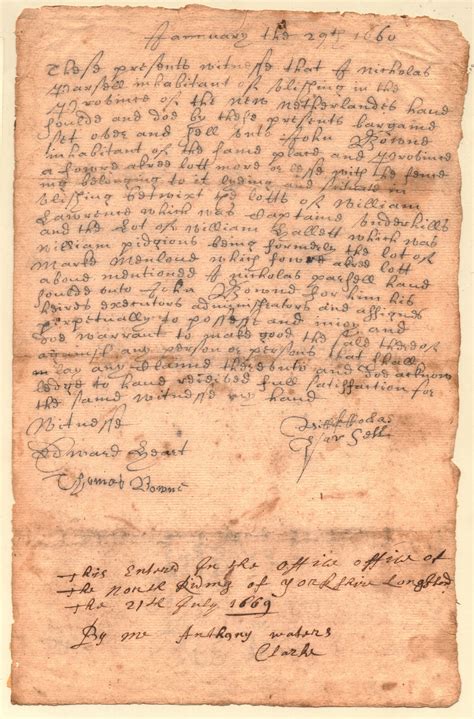 January the 29th 1660
These presents witnesse that I Nicholas
Parsell inhabitant of vlishing in the
Province of the new Netherlandes hand
soulde and doe by these presents bargaine
set over and sell unto John Bowne
inhabitant of the same place and Province
a fowre akree lott more or lesse with the fence
ing belonging to it lyeing and situate in
vlissing betwixt the lotts of William
Lawrence which was Captaine vnderhills
and the Lot of William hallett which was
William pidgions being formerly the lot of
Marke Menloue which fowre akree lott
aboue mentioned I Nicholas parsell hand
soulde vnto John Bowne for him his
heires executors administrators and assignes
perpetually to possess and inioy and
doe warrant to make good the sale thereof
against any person or persons that shall
lay any Claime thereunto and doe acknow
ledge to hand reseived full sattisfaction for
the same witnesse my hand
Witnesse
Nickholas
Par Sell
Edward heart
Thomas Bowne
This Enterd In the office office of
the north Riding of yorkshire Longhted
the 21th July 1669
By me Anthony waters
Clarke